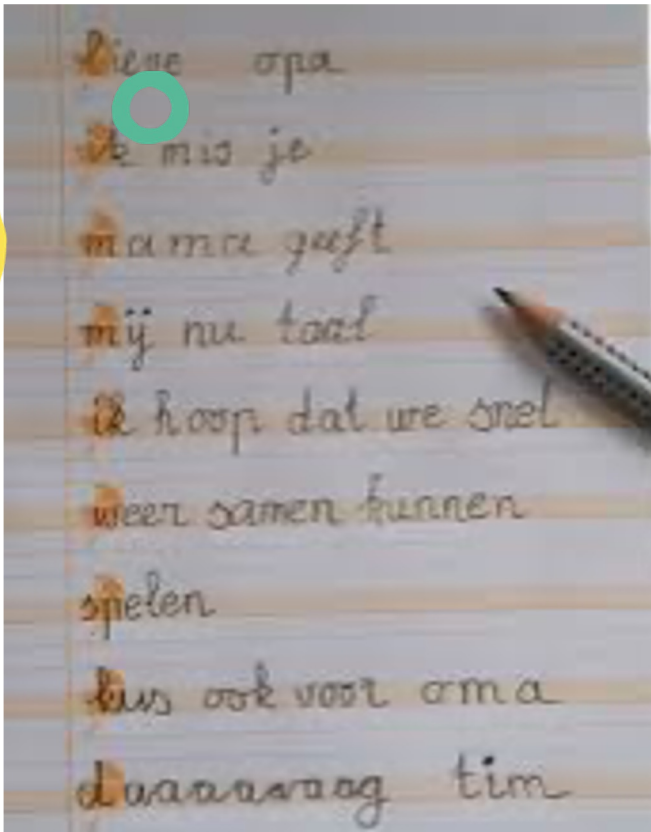 lieve opa
ik mis je
mama geeft
mij nu taal
ik hoop dat we snel
weer samen kunnen
spelen
kus ook voor oma
daaaaaaag tim